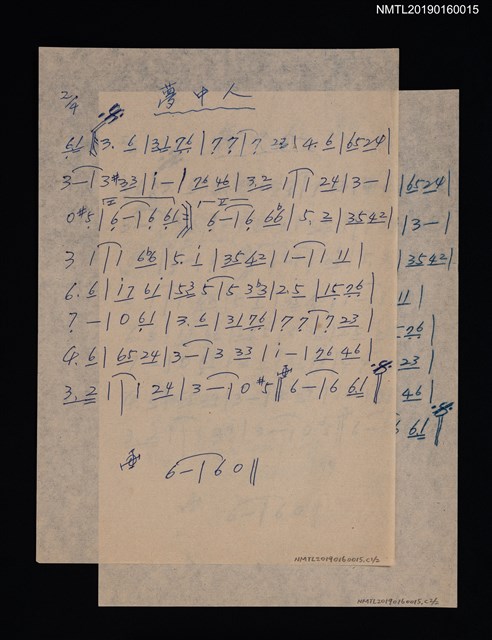 NMTL20190160015
2/4 夢中人
6 1 ‖ 3. 6 | 3 1 7 6 | 7 7 | 7 2 3 | 4. 6 | 6 5 2 4 |
3 — | 3 #3 3 | i — | 7 6 4 6 | 3. 2 1 | 1 2 4 | 3 — | | 6 5 2 4 |
0 #5 | 6 — | 6 6 1 ‖ 6 — | 6 6 6 | 5. 2 | 3 5 4 2 | | 3 — |
3 1 | 1 6 6 | 5. i | 3 5 4 2 | 1 — | 1 1 1 | | 3 5 4 2 |
6. 6 | i 7 6 i | 5 3 5 | 5 3 3 | 2. 5 | 1 5 7 6 | 1 1 |
7 — | 0 6 1 | 3. 6 | 3 1 7 6 | 7 7 | 7 2 3 | 5 7 6 |
4. 6 | 6 5 2 4 | 3 — | 3 3 3 | i — | 7 6 4 6 | 2 3 |
3. 2 | 1 | 1 2 4 | 3 — | 0 #5 ‖ 6 — | 6 6 1 ‖ 4 6 |
6 1 ‖
6 — | 6 0 ‖
NMTL20190160015.C1/2
NMTL20190160015.C2/2